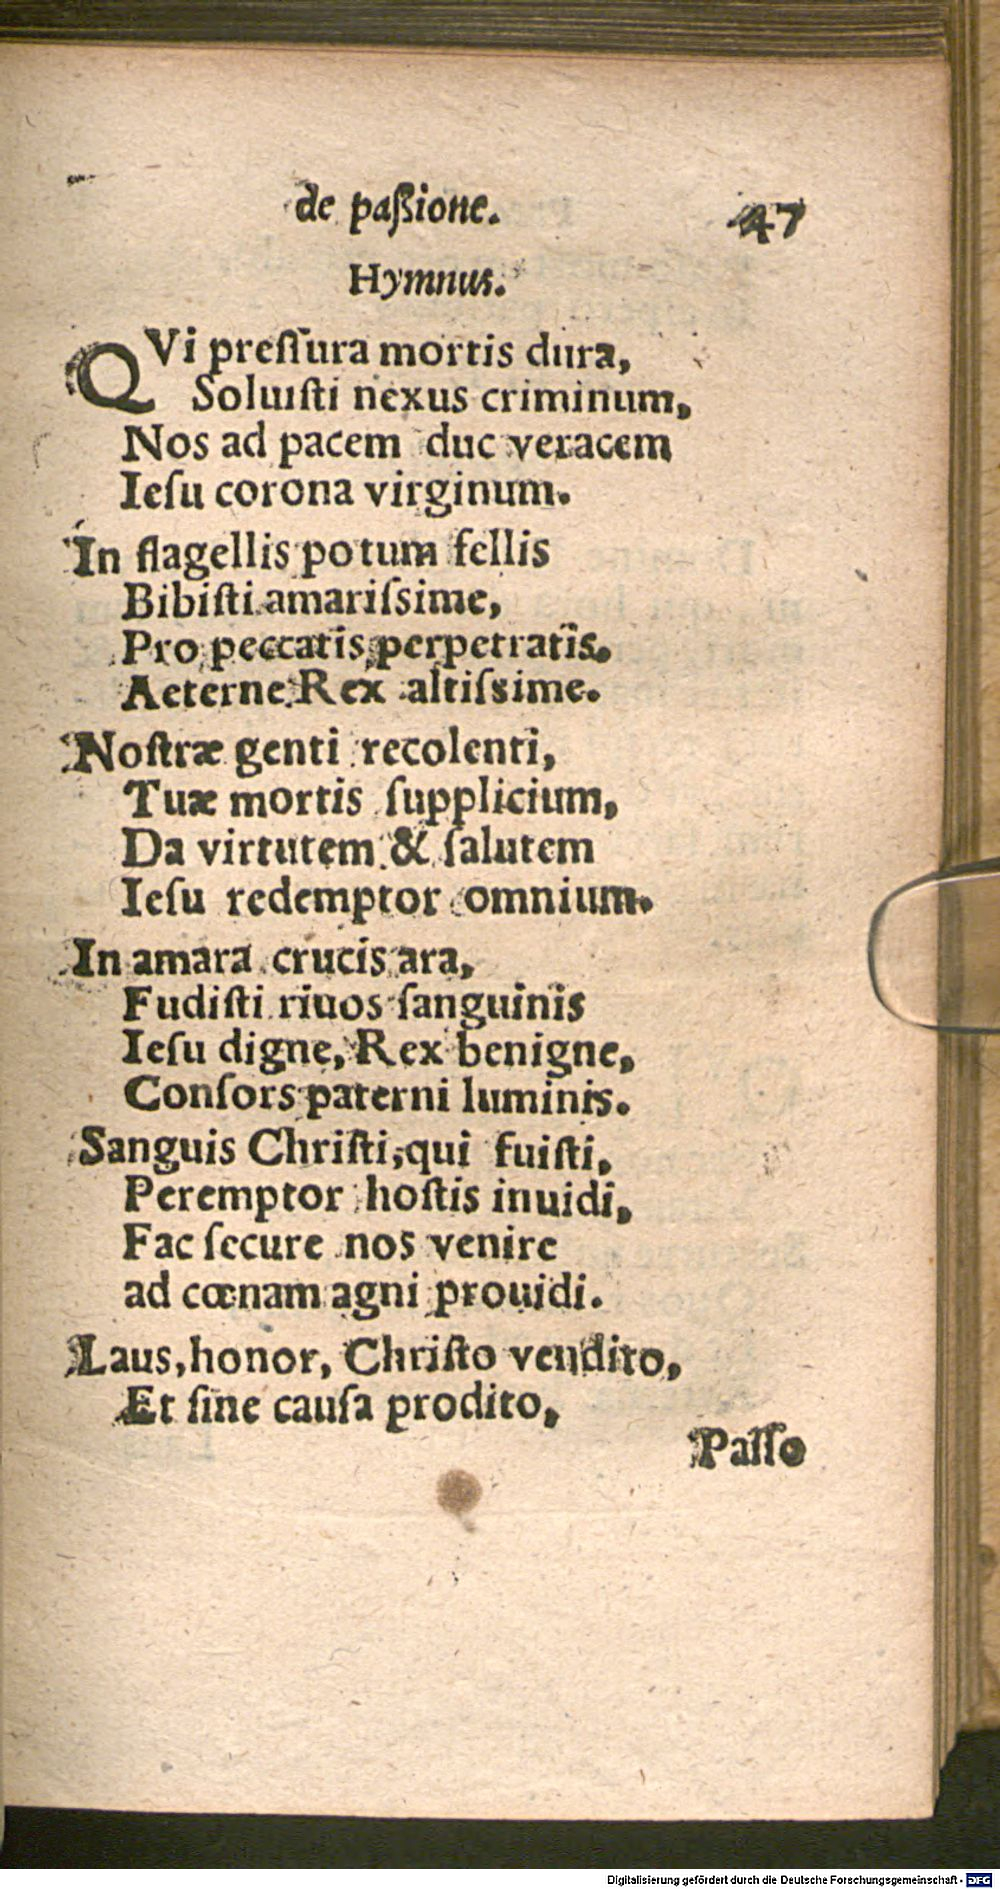 de paßione. 47
Hymnus.
QVi preſſura mortis dura,
Soluiſti nexus criminum,
Nos ad pacem duc veracem
Ieſu corona virginum.
In flagellis potum fellis
Bibiſti amariſsime,
Pro peccatis perpetratis.
Aeterne Rex altiſsime.
Noſtræ genti recolenti,
Tuæ mortis ſupplicium,
Da virtutem & ſalutem
Ieſu redemptor omnium.
In amara crucis ara,
Fudiſti riuos ſanguinis
Ieſu digne, Rex benigne,
Conſors paterni luminis.
Sanguis Chriſti, qui fuiſti,
Peremptor hoſtis inuidi,
Fac ſecure nos venire
ad cœnam agni prouidi.
Laus, honor, Chriſto vendito,
Et ſine cauſa prodito,
Paſſo
Digitalisierung gefördert durch die Deutsche Forschungsgemeinschaft - DFG